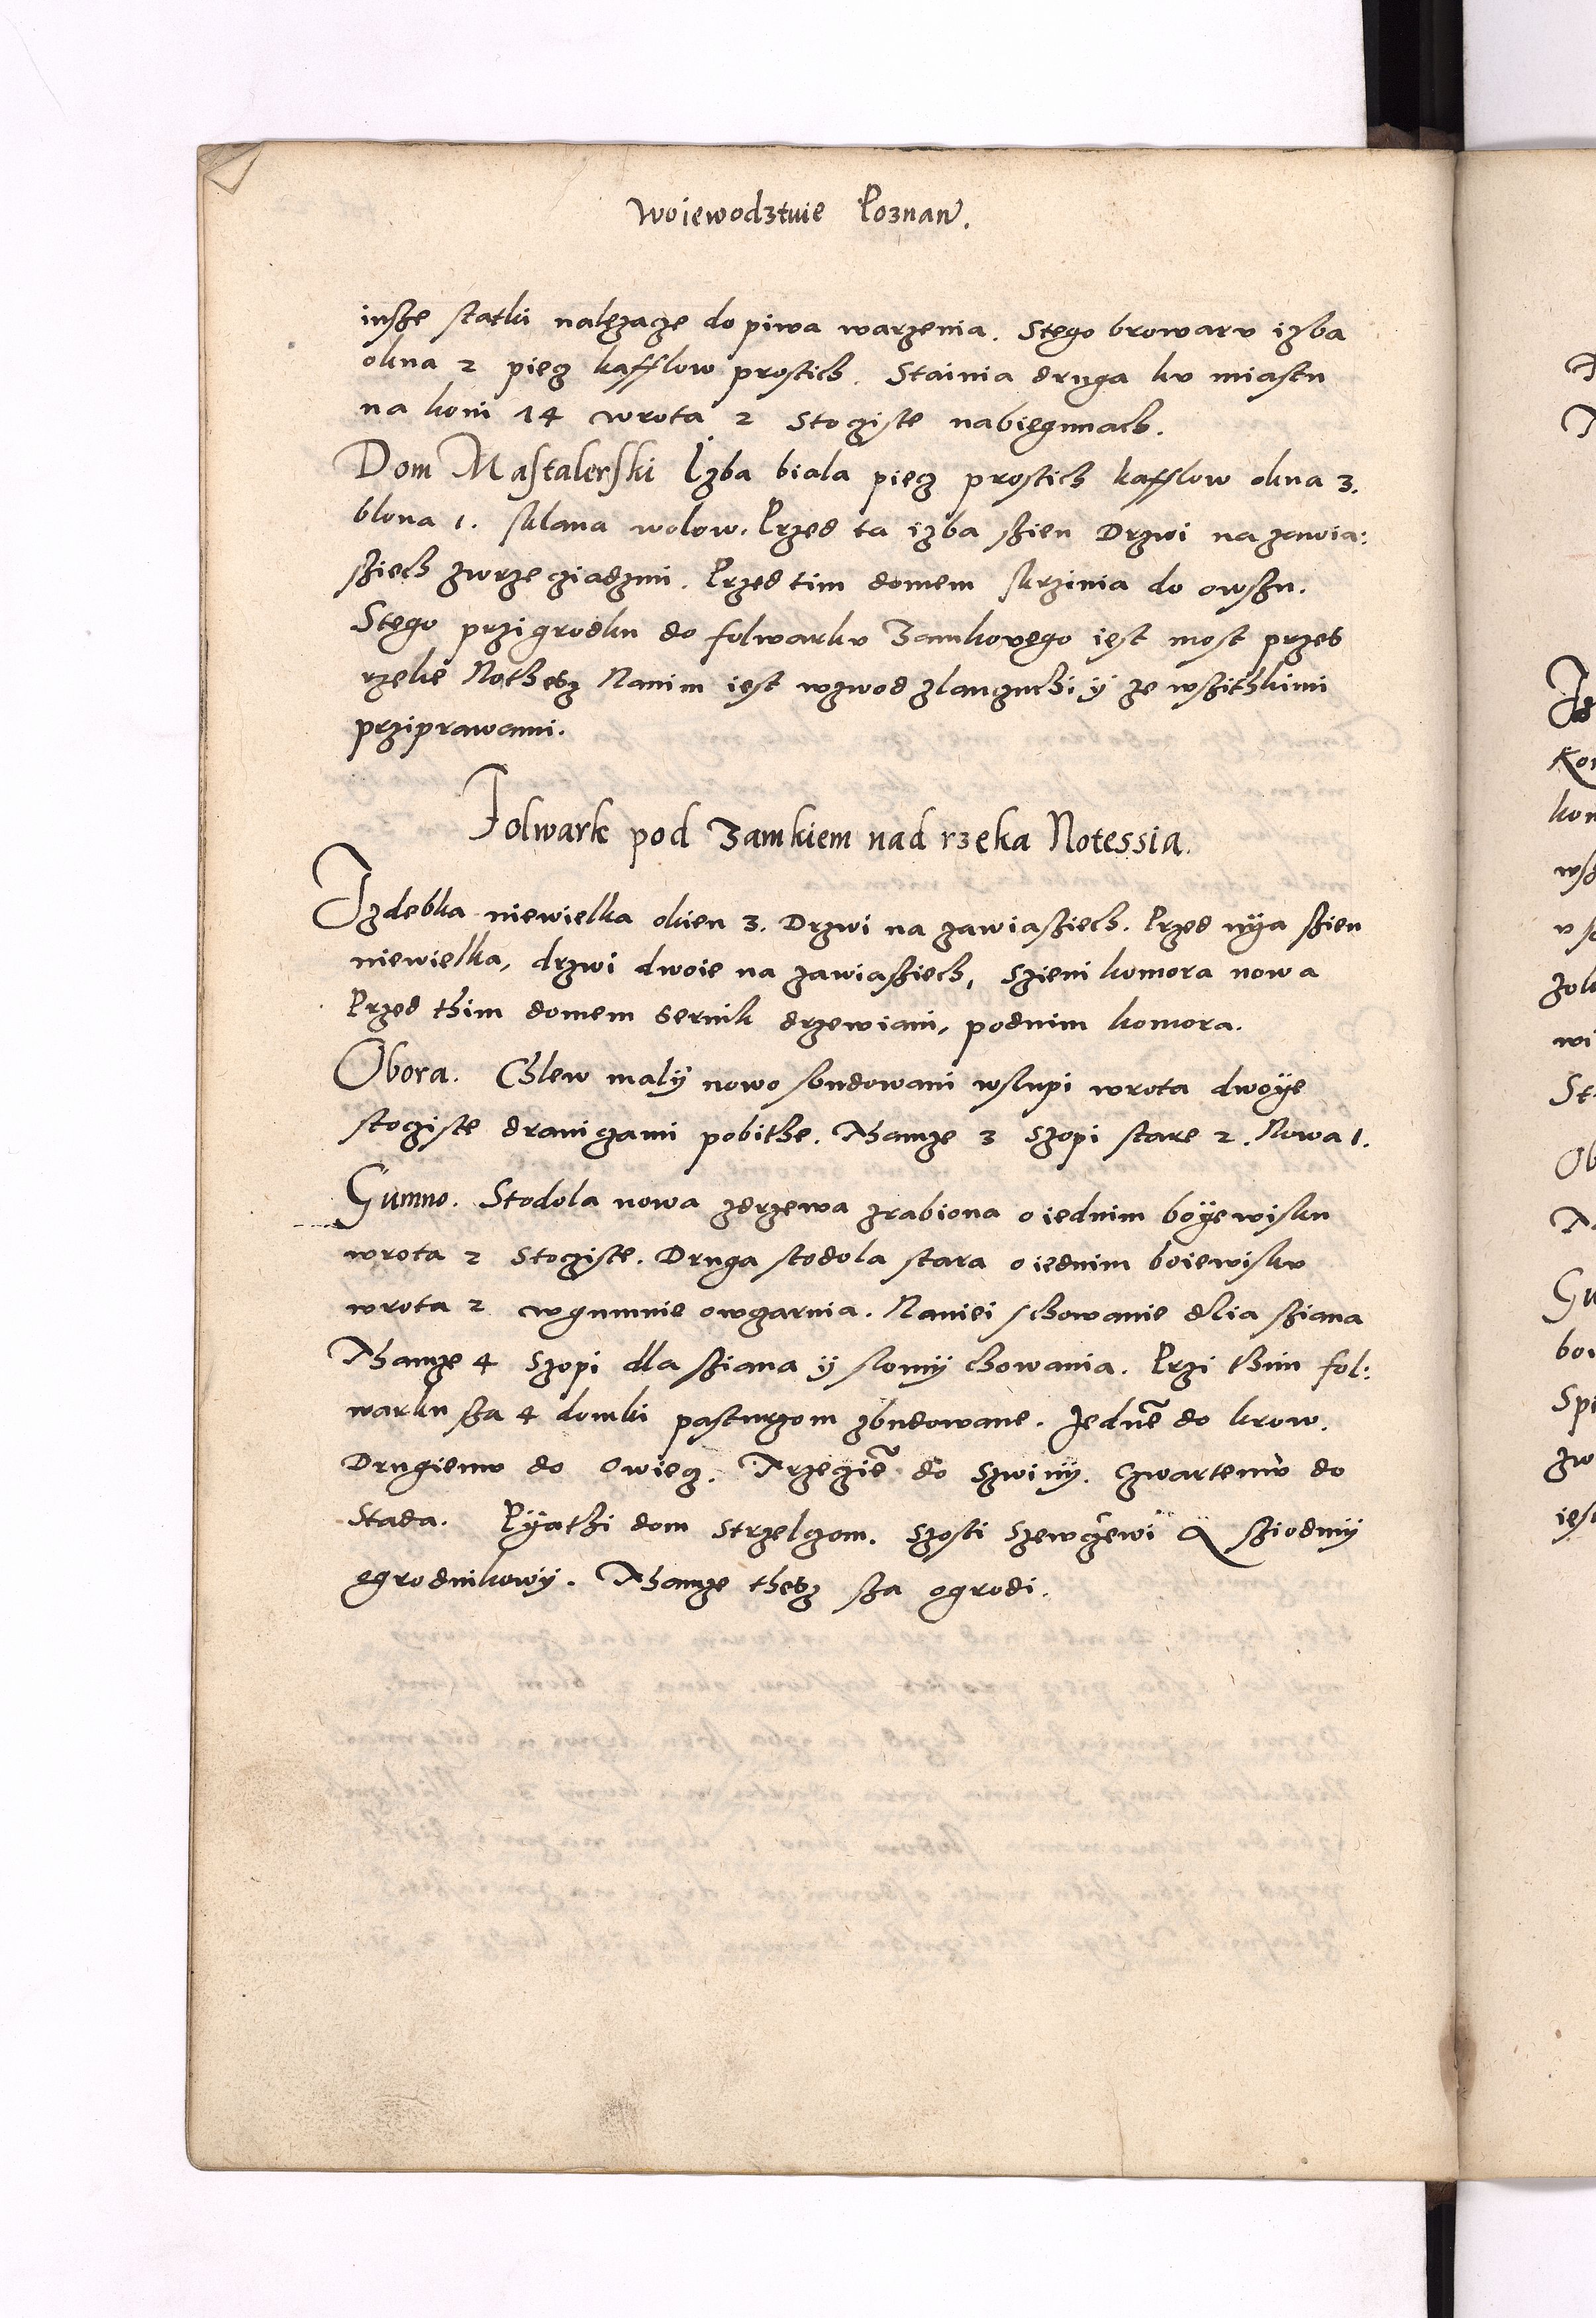 Woiewodztwie Poznan̄.
insze statki nalęzacze do piwa warzenia. Stego browaru izba
okna 2 piecz kafflow prostich. Stainia druga ku miastu
na koni 14 wrota 2 stocziste nabiegunach.
Dom Mastalerski Izba biala piecz prostich kafflow okna 3.
blona 1. sklana wolow. Przed ta izba szien Drzwi na zawia:
sziech zwrzecziadzmi. Przed tim domem skrzinia do owszu.
Stego przigrodku do folwarku Zamkowego iest most przes
rzeke Nothesz Nanim iest wzwod zlanczuchi ÿ ze wszithkimi
prziprawami.
Folwark pod Zamkiem nad rzeka Notessia.
Izdebka niewielka okien 3. Drzwi na zawiasziech. Przed nÿa szien
niewielka, drzwi dwoie na zawiasziech, Szieni komora nowa
Przed thim domem Sernik drzewiani, podnim komora.
Obora. Chlew malÿ nowo sbudowani wslupi wrota dwoÿe
stocziste draniczami pobithe. Thamze 3 Szopi stare 2. Nowa 1.
Gumno. Stodola nowa zdrzewa zrabiona o iednim boÿewisku
wrota 2 Stocziste. Druga stodola stara o iednim boiewisku
wrota 2 wgumnie owczarnia. Naniei schowanie dlia sziana
Thamze 4 Szopi dla sziana ÿ slomÿ chowania. Przi thim fol:
warku sza 4 domki pasturzom zbudowane. Jednē do krow.
Drugiemu do Owiecz. Trzecziē do Szwinÿ. Czwartemu do
Stada. Pÿathi dom Strzelczom. Szosti Szewczewi & sziodmÿ
ogrodnikowÿ. Thamze thesz sza ogrodi.